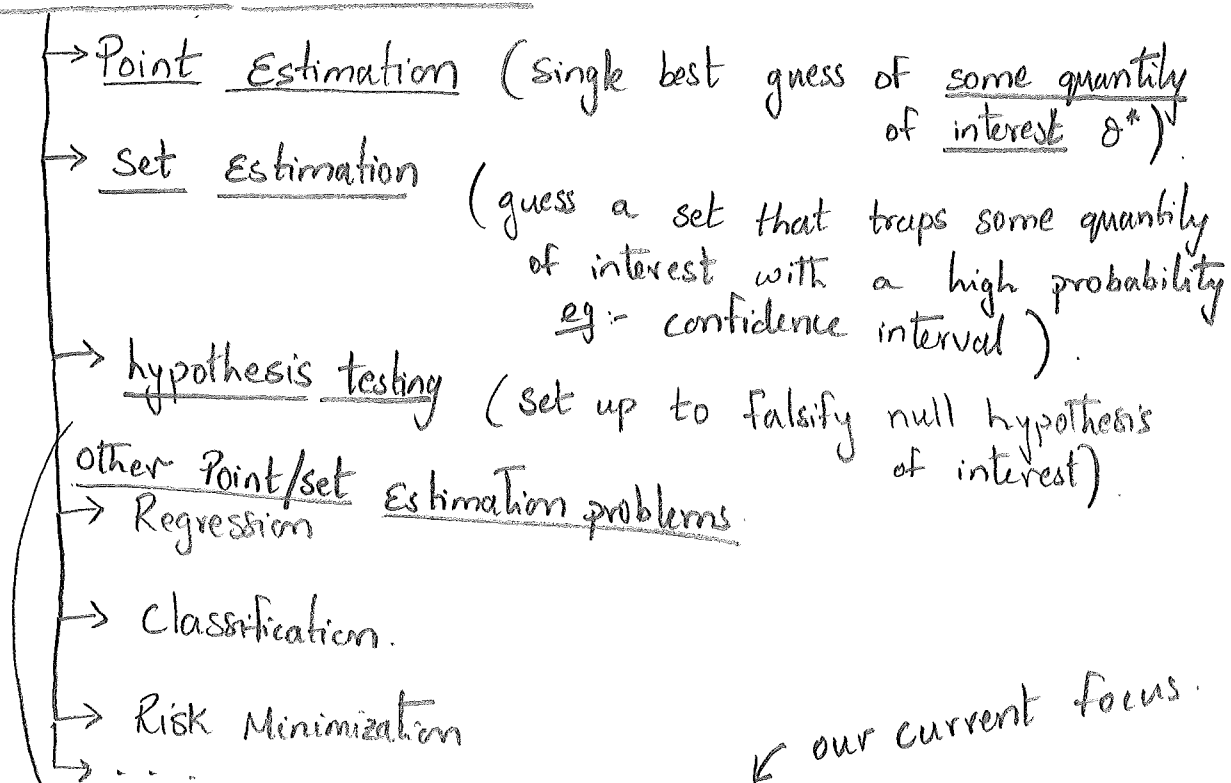 → Point Estimation (single best guess of some quantity
of interest θ*).
→ Set Estimation
(guess a set that traps some quantity
of interest with a high probability
eg:- confidence interval).
→ hypothesis testing (set up to falsify null hypothesis
of interest).
other Point/set Estimation problems.
→ Regression
→ Classification.
→ Risk Minimization
→ . . . .
↙ our current focus.